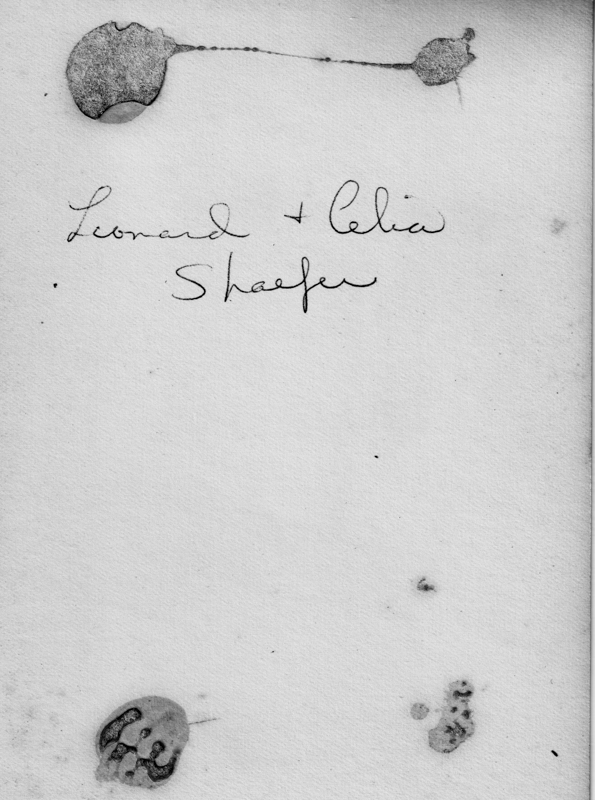 Leonard + Celia
Shaefer